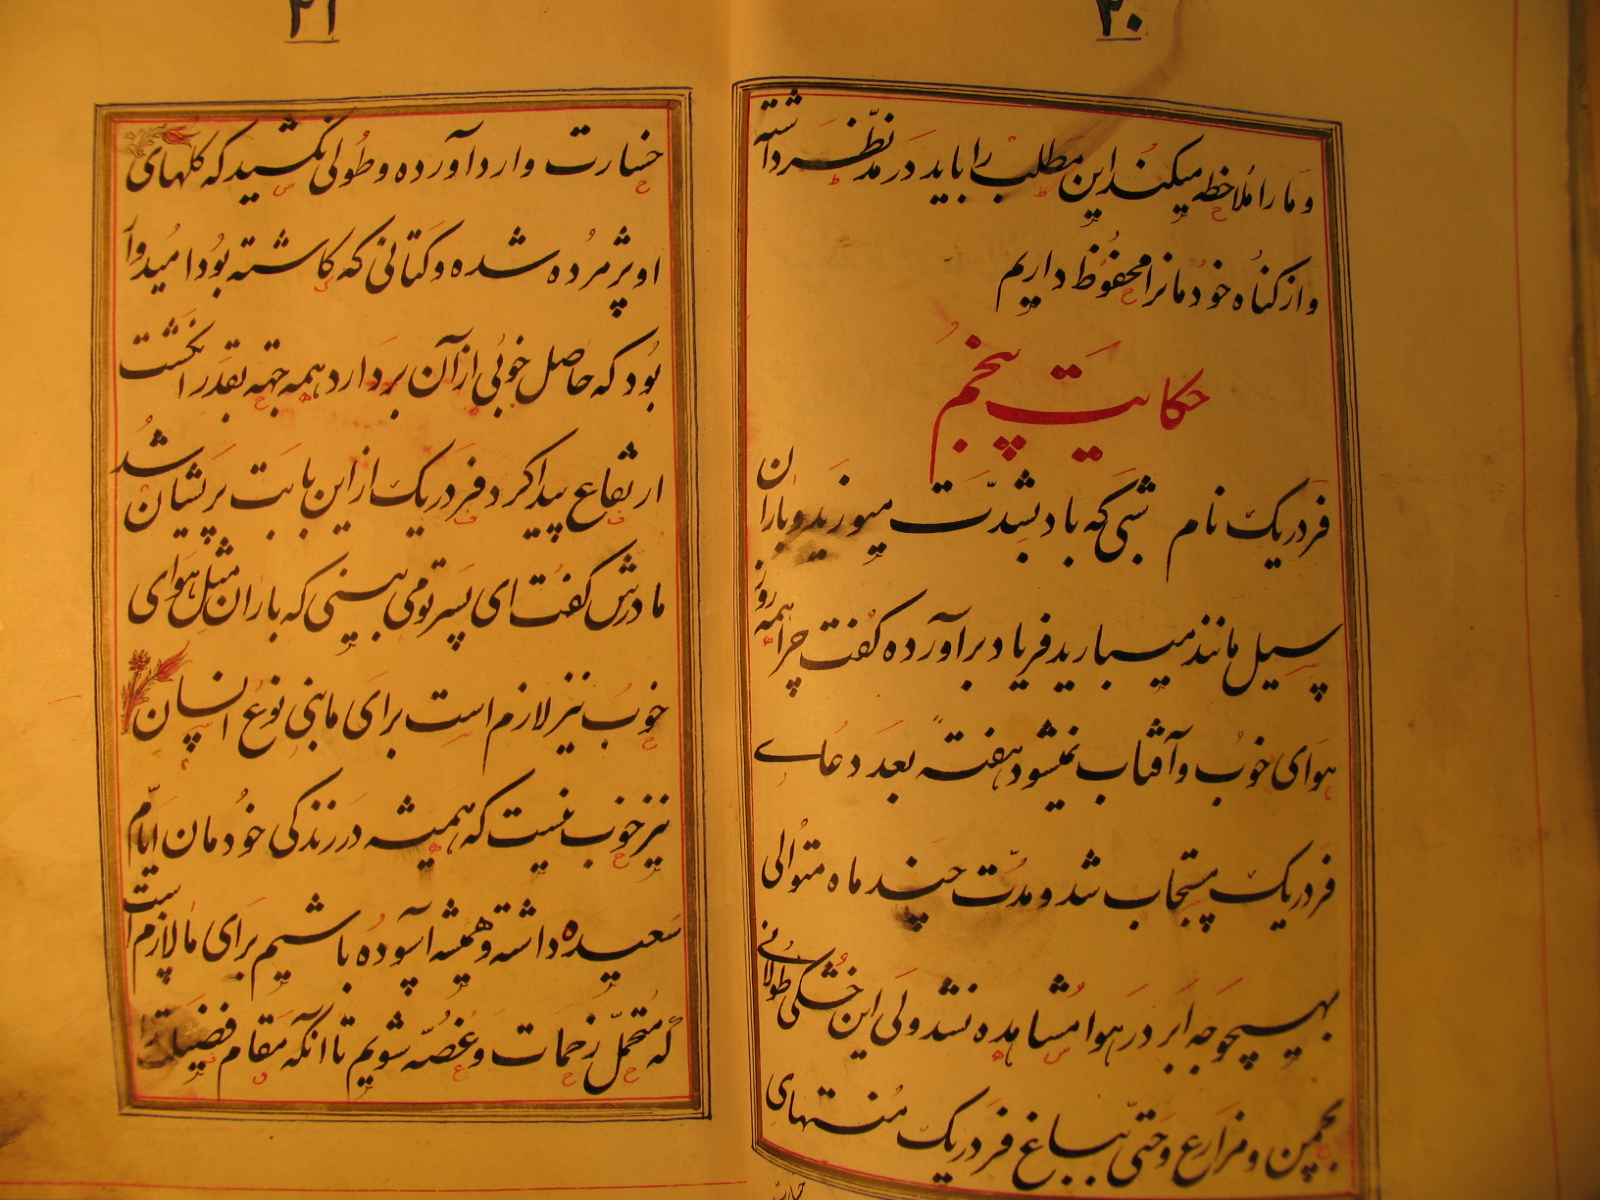 ۲۰
و ما را ملاحظه میکند این مطلب را باید در مد نظر داشته
و از کناه خودمانرا محفوظ داریم
حکایت پنجم
فردریک نام شبی که باد بشدت میوزید و باران
سیل مانند میبارید فریاد برآورده کفت چرا همه روز
هوای خوب و آفتاب نمیشود هفتهٔ بعد دعای
فردریک مستجاب شد و مدت چند ماه متوالی
بهیچوجه ابر در هوا مشاهده نشد ولی این خشکی طولانی
بچمن و مزارع و حتی بباغ فردریک منتهای
خسارت
۲۱
خسارت وارد آورده و طولی نکشید که کلهای
او پژمرده شده و کتانی که کاشته بود امیدوار
بود که حاصل خوبی از آن بردارد همه جهة بقدر انکشت
ارتفاع پیدا کرد فردریک از این بابت پریشان شد
مادرش کفت ای پسر تو می بینی که باران مثل هوای
خوب نیز لازم است برای ما بنی نوع انسان
نیز خوب نیست که همیشه در زندکی خودمان ایام
سعیده داشته و همیشه آسوده باشیم برای ما لازم است
که متحمل زحمات و غصه شویم تا آنکه مقام فضیلت